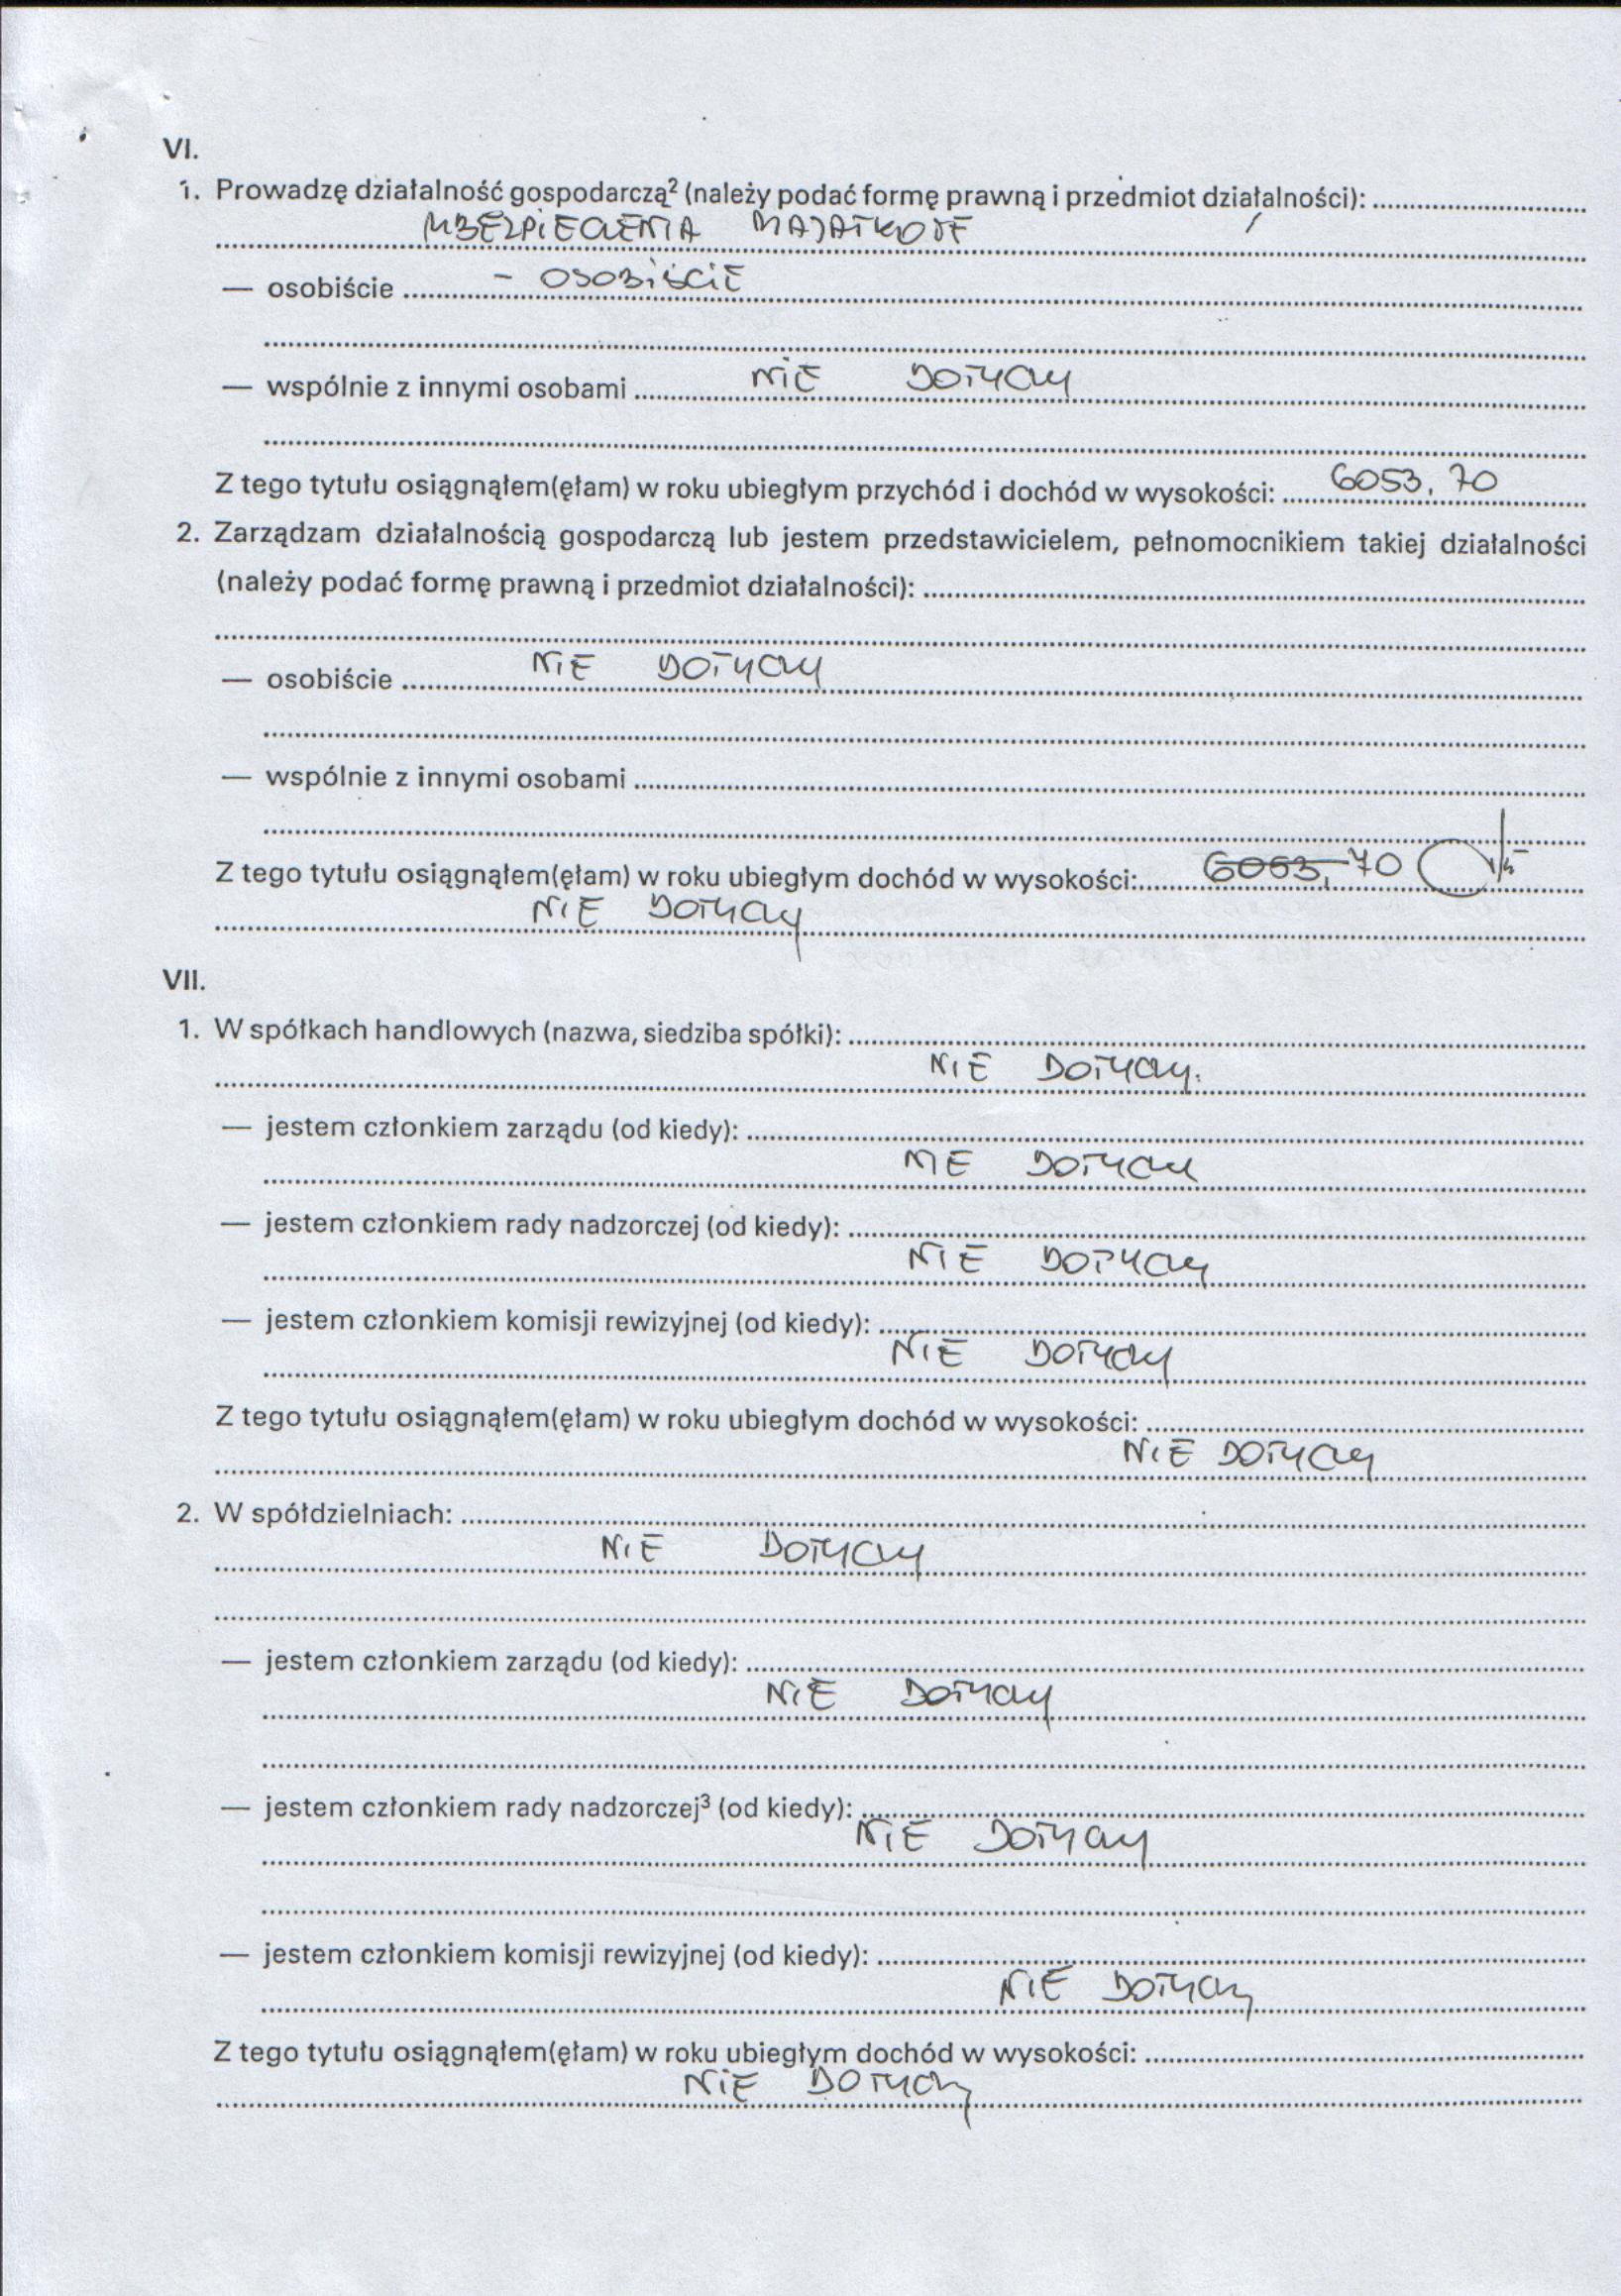 VI.
1. Prowadzę działalność gospodarczą² (należy podać formę prawną i przedmiot działalności):
UBEZPIECZENIA MAJĄTKOWE
— osobiście - OSOBIŚCIE
— wspólnie z innymi osobami NIE DOTYCZY
Z tego tytułu osiągnąłem(ęłam) w roku ubiegłym przychód i dochód w wysokości: 6053,70
2. Zarządzam działalnością gospodarczą lub jestem przedstawicielem, pełnomocnikiem takiej działalności
(należy podać formę prawną i przedmiot działalności):
— osobiście NIE DOTYCZY
— wspólnie z innymi osobami
Z tego tytułu osiągnąłem(ęłam) w roku ubiegłym dochód w wysokości: 6053,70
NIE DOTYCZY
VII.
1. W spółkach handlowych (nazwa, siedziba spółki):
NIE DOTYCZY.
— jestem członkiem zarządu (od kiedy):
NIE DOTYCZY
— jestem członkiem rady nadzorczej (od kiedy):
NIE DOTYCZY
— jestem członkiem komisji rewizyjnej (od kiedy):
NIE DOTYCZY
Z tego tytułu osiągnąłem(ęłam) w roku ubiegłym dochód w wysokości:
NIE DOTYCZY
2. W spółdzielniach:
NIE DOTYCZY
— jestem członkiem zarządu (od kiedy):
NIE DOTYCZY
— jestem członkiem rady nadzorczej³ (od kiedy):
NIE DOTYCZY
— jestem członkiem komisji rewizyjnej (od kiedy):
NIE DOTYCZY
Z tego tytułu osiągnąłem(ęłam) w roku ubiegłym dochód w wysokości:
NIE DOTYCZY